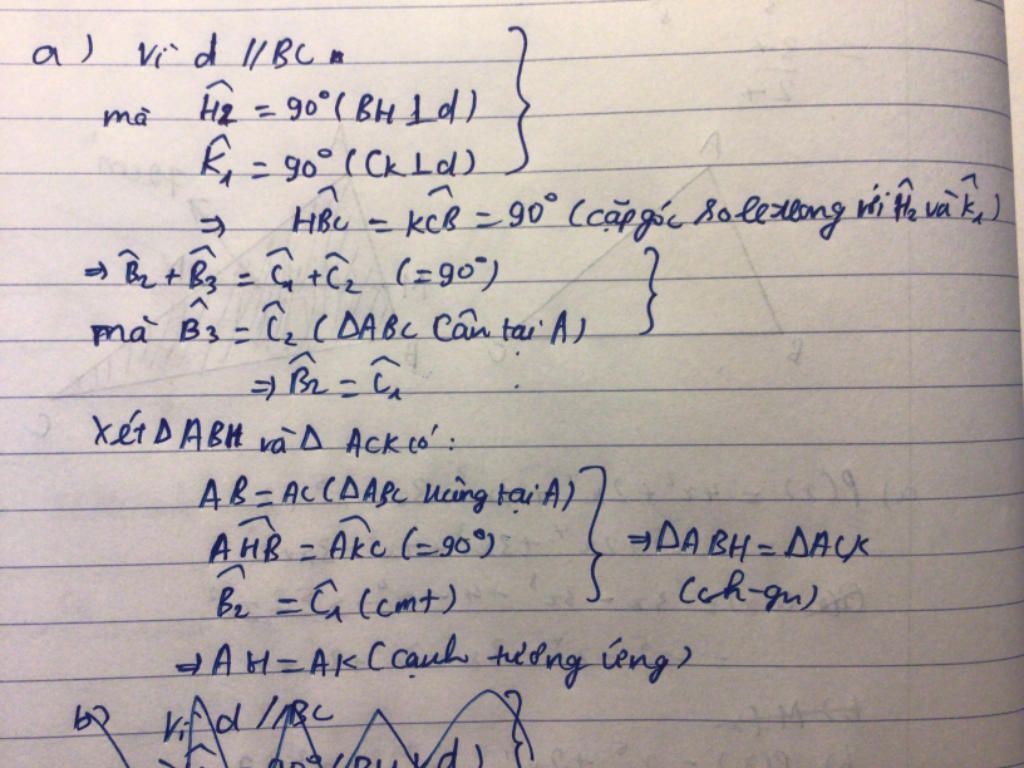 a) Vì d // BC
mà Ĥ₂ = 90° (BH ⊥ d)
K̂₁ = 90° (CK ⊥ d)
⇒ HB̂C = KĈB = 90° (cặp góc so le trong với Ĥ₂ và K̂₁)
⇒ B̂₂ + B̂₃ = Ĉ₁ + Ĉ₂ (= 90°)
mà B̂₃ = Ĉ₂ (ΔABC cân tại A)
⇒ B̂₂ = Ĉ₁
Xét ΔABH và Δ ACK có:
AB = AC (ΔABC tại A)
AĤB = AK̂C (= 90°)
⇒ ΔABH = ΔACK
B̂₂ = Ĉ₁ (cmt)
(ch-gn)
⇒ AH = AK (cạnh tương ứng)
b) Vì d // BC